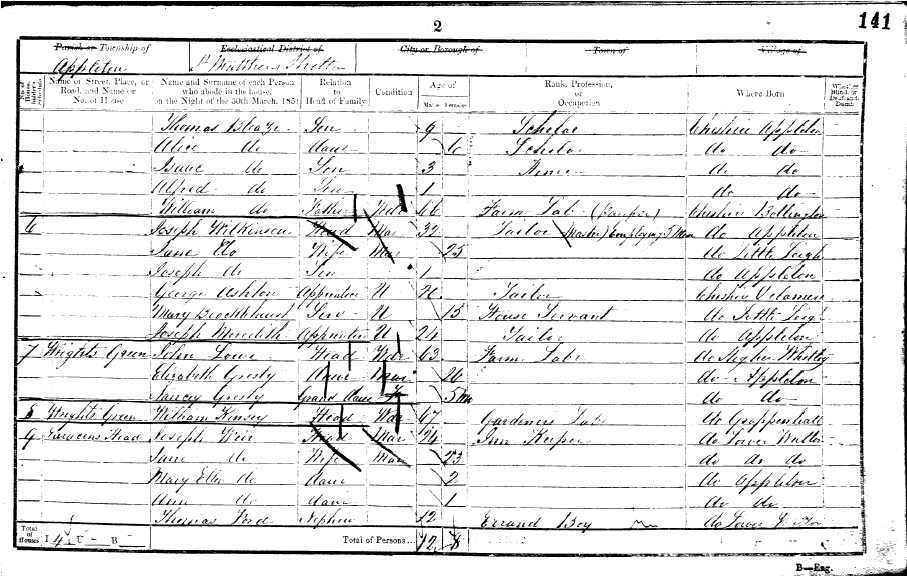 2
141
Parish or Township of Ecclesiastical District of City or Borough of Town of Village of
Appleton St Matthew Stretton
No. of House-holder's Schedule Name of Street, Place, or Road, and Name or No. of House Name and Surname of each Person who abode in the house, on the Night of the 30th March, 1851 Relation to Head of Family Condition Age of Males Females Rank, Profession, or Occupation Where Born Whether Blind, or Deaf-and-Dumb
Thomas Son 9 Scholar Cheshire Appleton
Alice do Daur 6 Scholar do do
Isaac do Son 3 Home do do
Alfred do Son 1 do do
William do Father Wdr 66 Farm Lab (Pauper) Cheshire Bollington
6 Joseph Wilkinson Head Mar 32 Tailor Master Employing 3 Men do Appleton
Jane Do Wife Mar 25 do Little Leigh
Joseph do Son 1 do Appleton
George Ashton Apprentice U Tailor Cheshire Delamere
Mary Brocklehurst Serv U 15 House Servant do Little Leigh
Joseph Meredith Apprentice U 24 Tailor do Appleton
7 Wrights Green John Lowe Head Wdr 63 Farm Lab do Higher Whitley
Elizabeth Gresty Daur Mar 26 do Appleton
Gresty Grand Daur 5 Mo do do
8 Wrights Green William Kinsey Head Wdr 67 Gardeners Lab do Grappenhall
9 Saracens Head Joseph Weir Head Mar 24 Inn Keeper do Lower Walton
Jane do Wife Mar 23 do do do
Mary Ellen do Daur 2 do Appleton
Ann do Daur 1 do do
Thomas Ford Nephew 12 Errand Boy do Lower
Total of Houses I 4 U - B - Total of Persons 12 8
B—Eng.